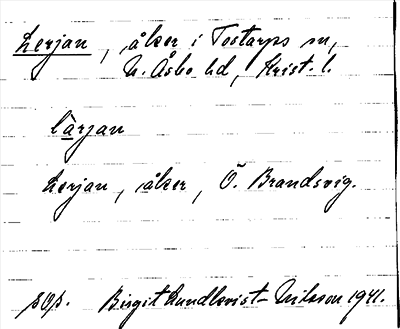 Lerjan, åker i Tostarps sn,
N. Åsbo hd, Krist. l.
lärjan
Lerjan, åker, Ö. Brandsvig.
pop. Birgit Lundkvist-Nilsson 1941.